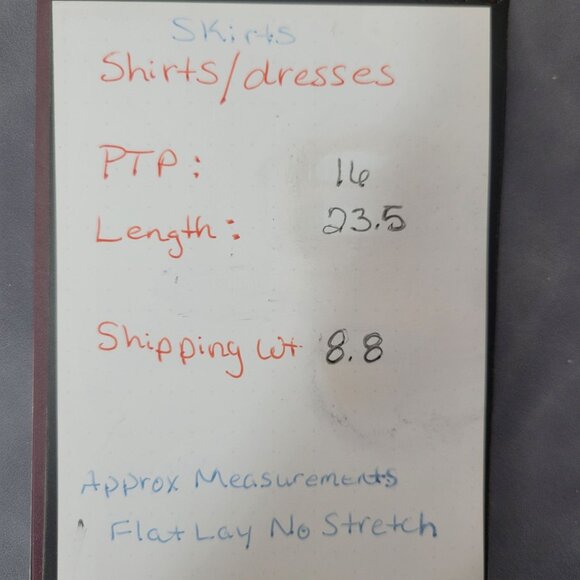 Skirts
Shirts/dresses
PTP: 16
Length: 23.5
Shipping wt 8.8
Approx Measurements
Flat Lay No Stretch